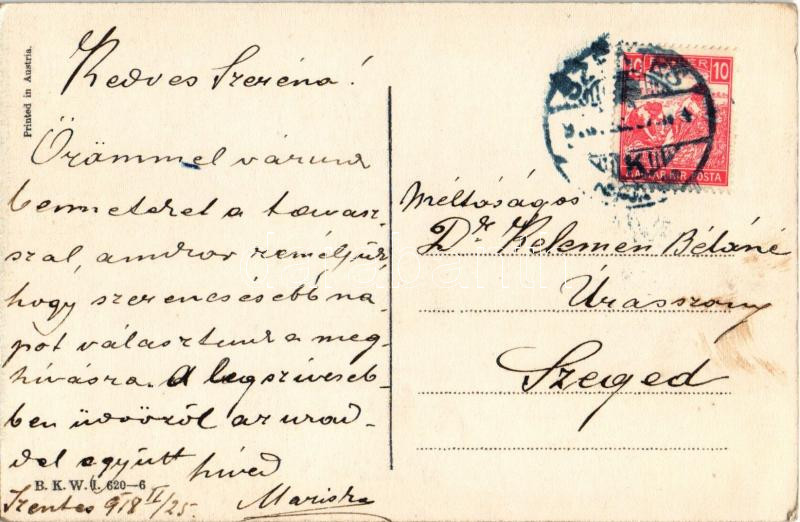 Printed in Austria.
Kedves Szeréna!
Örömmel várunk
benneteket a tavasz-
szal, amikor reméljük,
hogy szerencsésebb na-
pot választunk a meg-
hívásra. A legszívesebb-
ben üdvözöl az urad-
dal együtt híved
Mariska
Szentes 918 II/25.
B. K. W. I. 620–6
10 FILLÉR 10
MAGYAR KIR. POSTA
Méltóságos
Dr. Kelemen Béláné
Úrasszony
Szeged